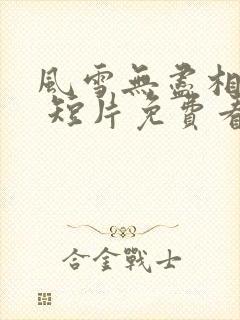 風雪無盡相
短片免費看
合金戰士